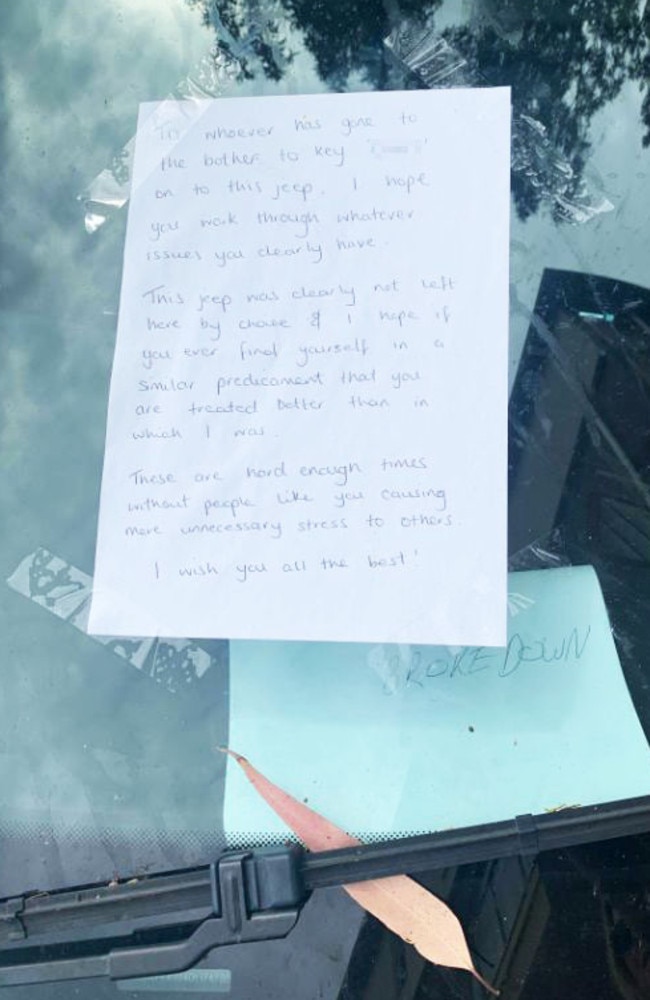 To whoever has gone to
the bother to key
on to this jeep. I hope
you work through whatever
issues you clearly have.
This jeep was clearly not left
here by choice & I hope if
you ever find yourself in a
similar predicament that you
are treated better than in
which I was.
These are hard enough times
without people like you causing
more unnecessary stress to others.
I wish you all the best!
BROKE DOWN